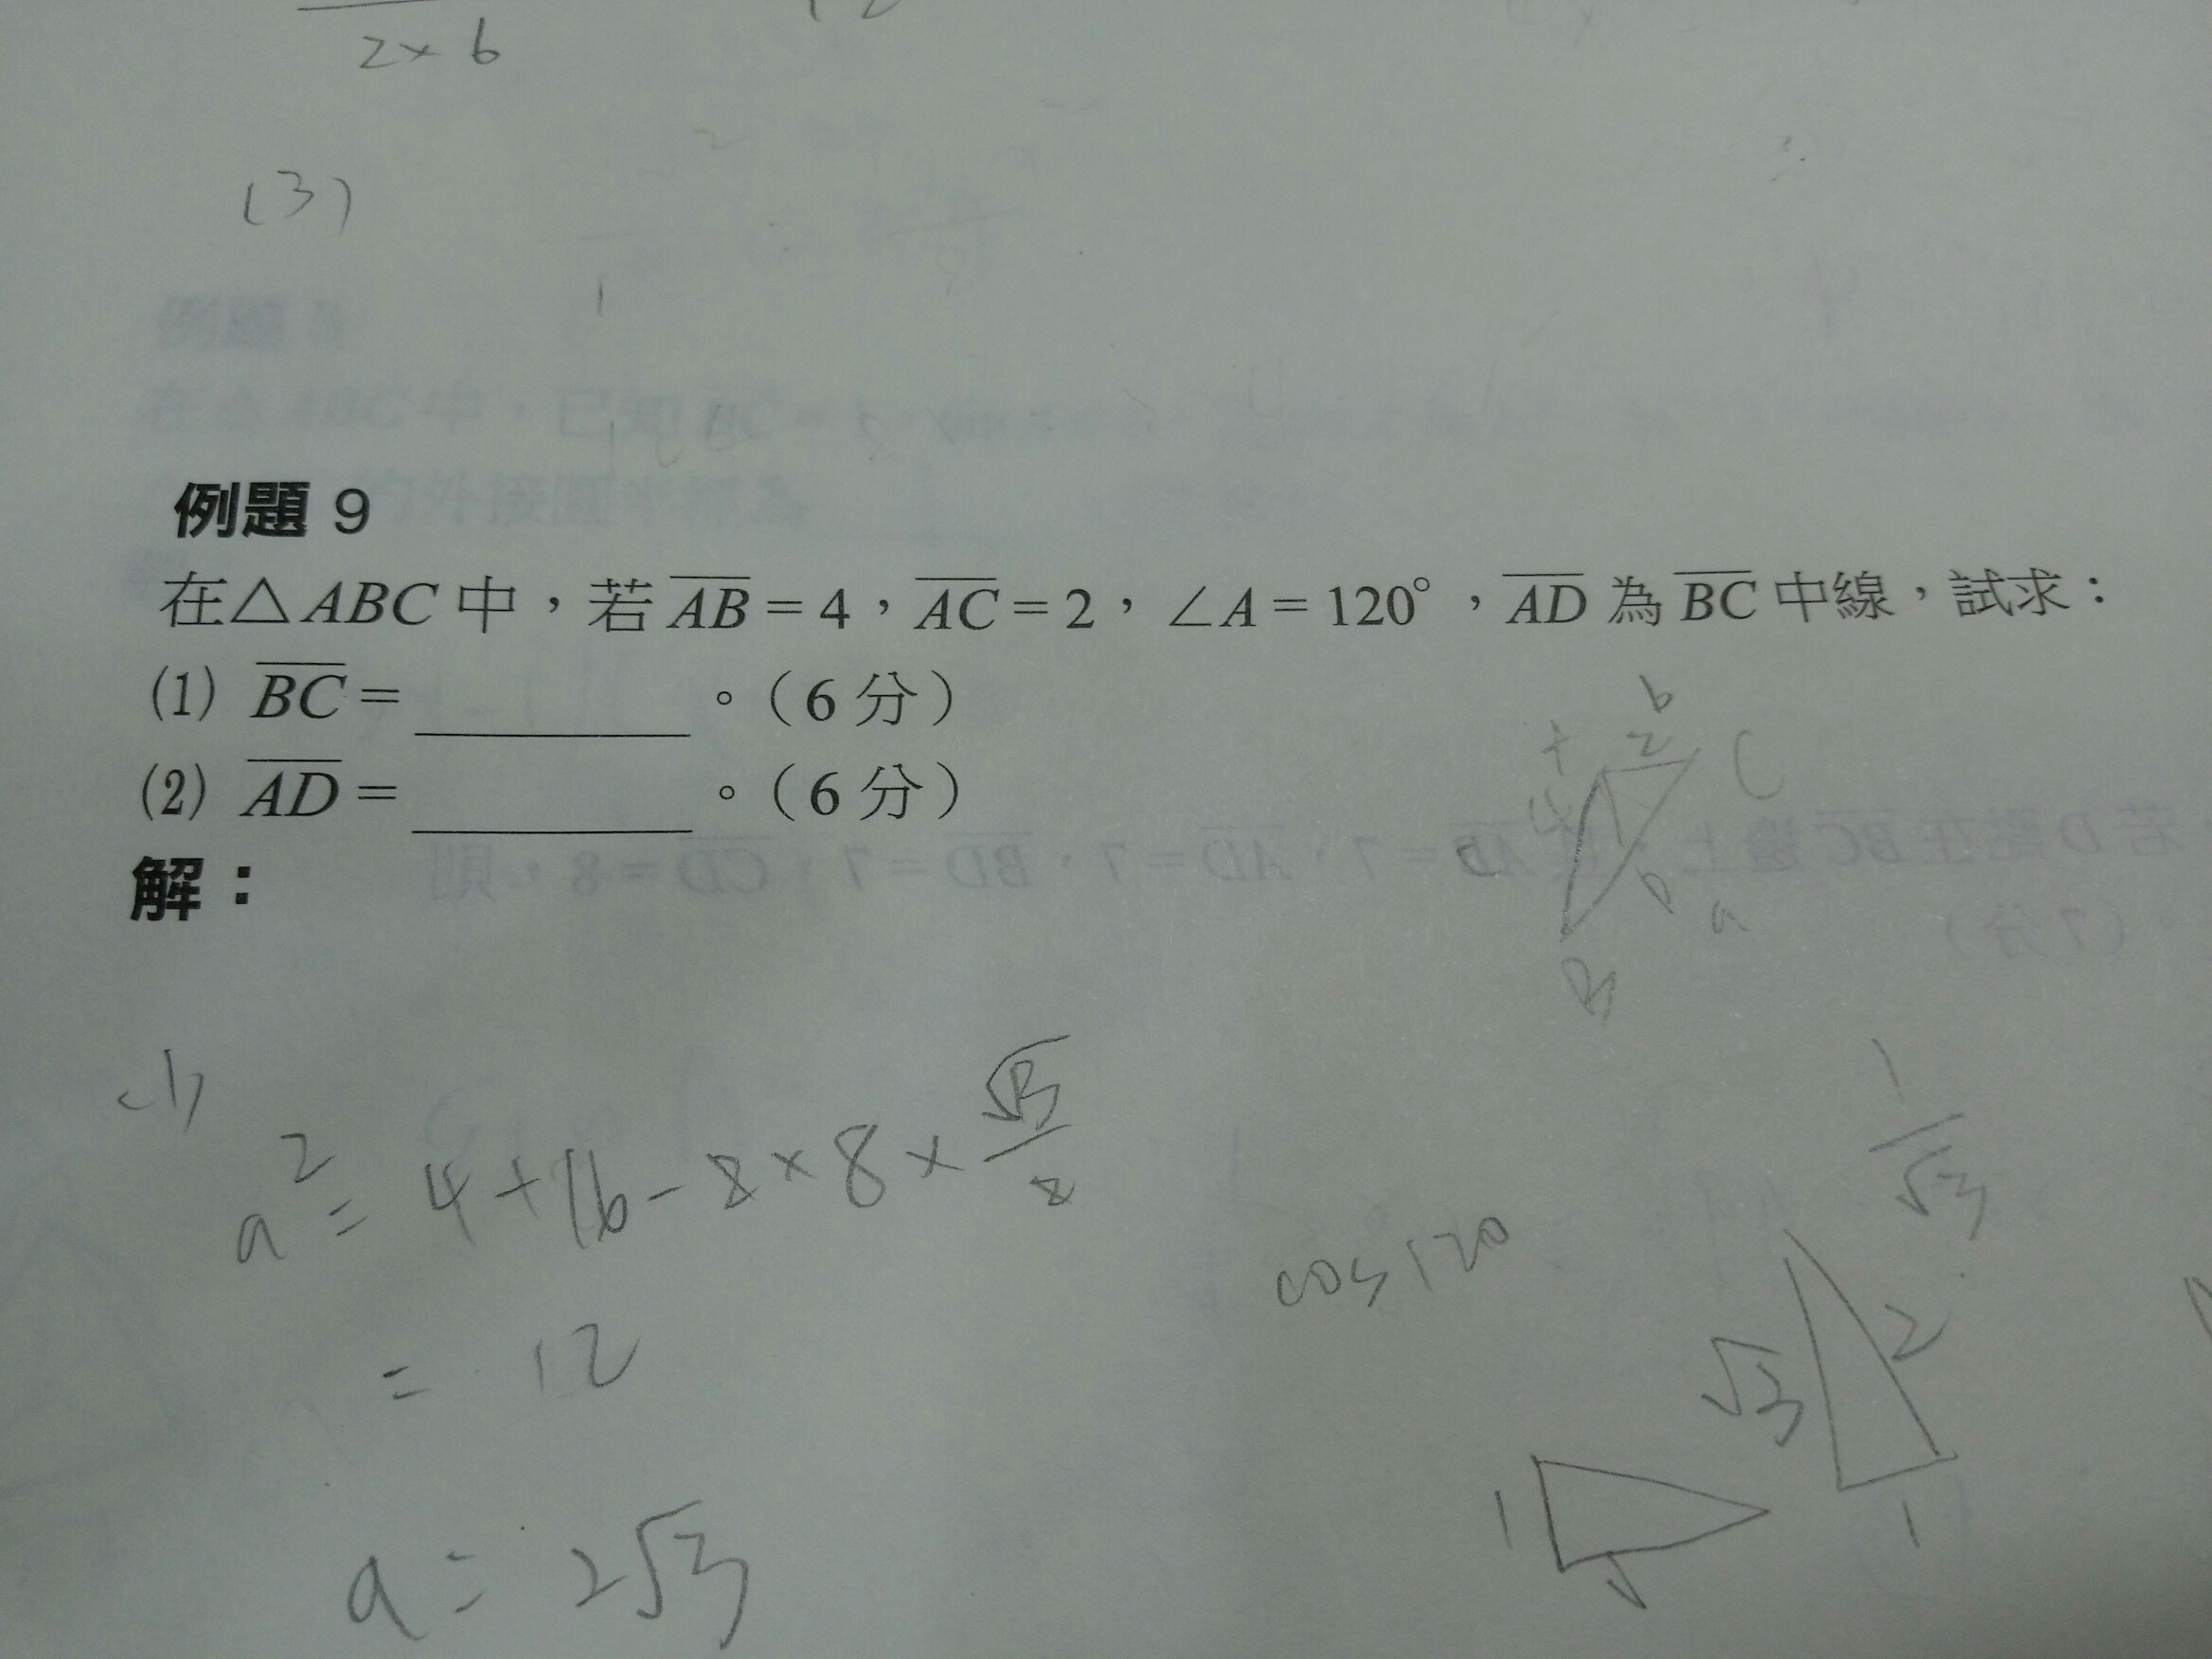 2×6
(3)
例題 9
在△ABC中，若 AB = 4，AC = 2，∠A = 120°，AD 為 BC 中線，試求：
(1) BC = ________ 。（6 分）
(2) AD = ________ 。（6 分）
解：
b
2
C
4
D
a
B
(1)
a² = 4 + 16 - 2 × 8 × √3/2
= 12
a = 2√3
cos 120
1/√3
√3
2
1
1